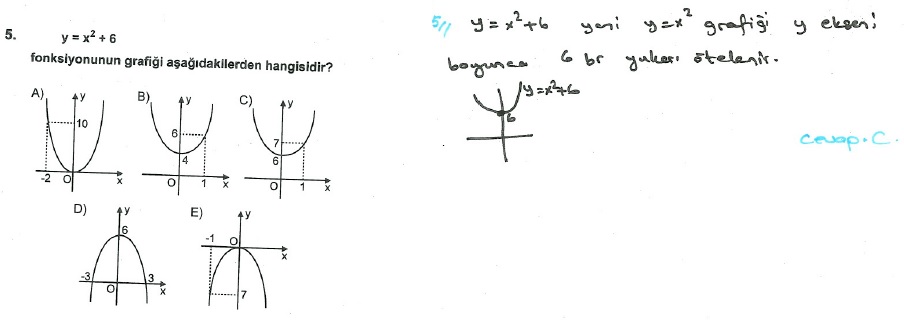 5.
y = x² + 6
fonksiyonunun grafiği aşağıdakilerden hangisidir?
A) y 10 -2 O x
B) y 6 4 O 1 x
C) y 7 6 O 1 x
D) y 6 -3 O 3 x
E) y -1 O x 7
5// y = x² + 6 yani y = x² grafiği y ekseni
boyunca 6 br yukarı ötelenir.
y = x² + 6
6
cevap. C.